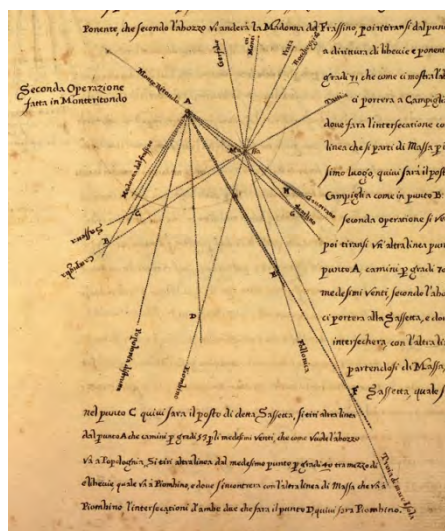 Ponente, che secondo l'abozzo vi anderà la Madonna del Frassino, poi tiransi dal pun
a dirittura di libbecie e ponente
gradi 71 che come ci mostra l'ab
ci porterà a Campigli
dove farà l'intersecatione co
linea che si partì di Massa p
simo luogo, quivi farà il post
Campiglia come in punto B.
seconda operatione si ve
poi tiransi un' altra linea pun
punto A, camini p gradi 70
medesimi venti, secondo l'abo
ci porterà alla Sassetta, e dou
intersecherà con l'altra li
partendosi di Massa,
Sassetta, quale s
Seconda Operatione
fatta in Monteritondo
Monte Ritondo
A
Gerfalco
Monti
Prata
Tatti
Madonna del frassino
Massa
H
G
Sassetta
Campiglia
B
D
N
Piombino
Follonica
E
Troia
nel punto C quivi sarà il posto di detta Sassetta, si tiri altra linea
dal punto A che camini p gradi 55 p li medesimi venti, che come vuole l'abozzo
và a Topologhia, Si tiri altra linea dal medesimo punto p gradi 40 tra mezzo di
e libbecie, quale và à Piombino, e dove s'incontrerà con l'altra linea di Massa che và à
Piombino l'intersecationi d'ambe due che farà il punto D, quivi farà Piombino.